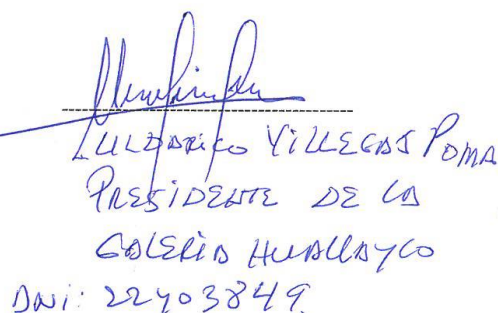 VILLEGAS POMA
PRESIDENTE DE LA
GALERIA HUALLAYCO
DNI: 22403849